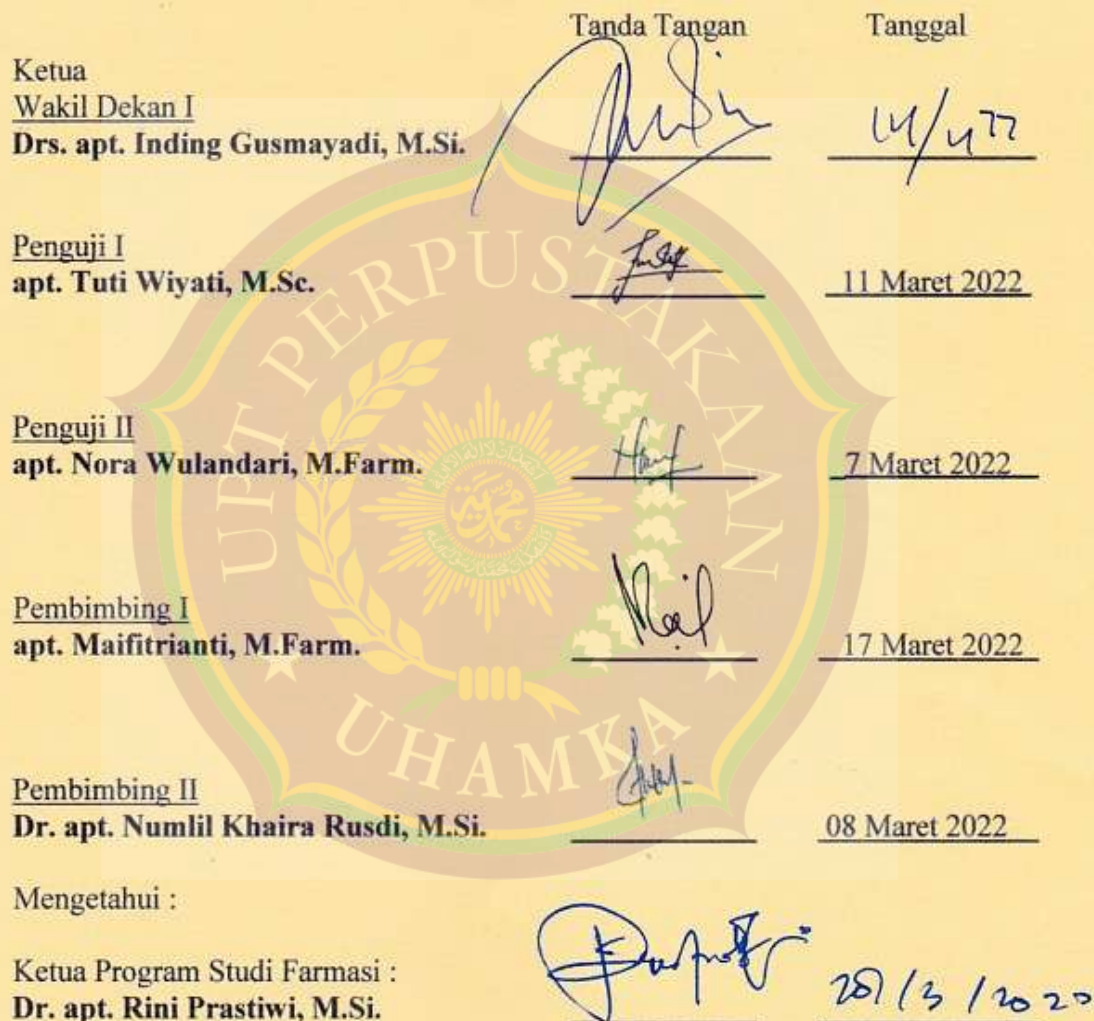 Tanda Tangan Tanggal
Ketua
Wakil Dekan I
Drs. apt. Inding Gusmayadi, M.Si.
Penguji I
apt. Tuti Wiyati, M.Sc. 11 Maret 2022
Penguji II
apt. Nora Wulandari, M.Farm. 7 Maret 2022
Pembimbing I
apt. Maifitrianti, M.Farm. 17 Maret 2022
Pembimbing II
Dr. apt. Numlil Khaira Rusdi, M.Si. 08 Maret 2022
Mengetahui :
Ketua Program Studi Farmasi :
Dr. apt. Rini Prastiwi, M.Si.
UPT PERPUSTAKAAN
UHAMKA